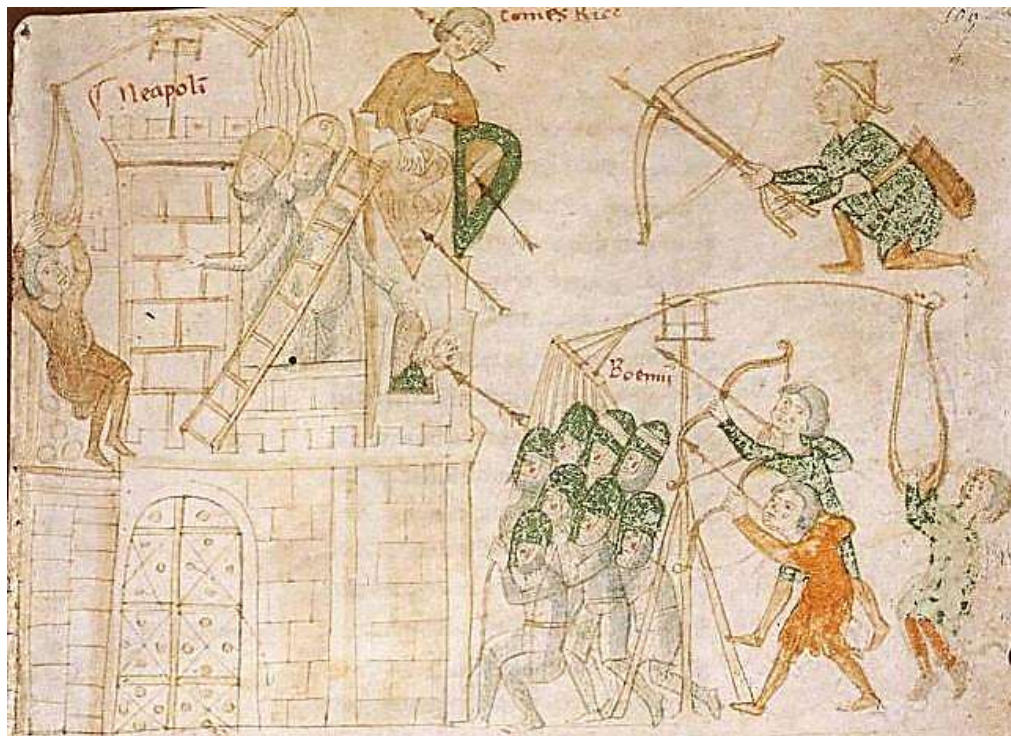 comes Ricc
109
Neapolī
Boemii